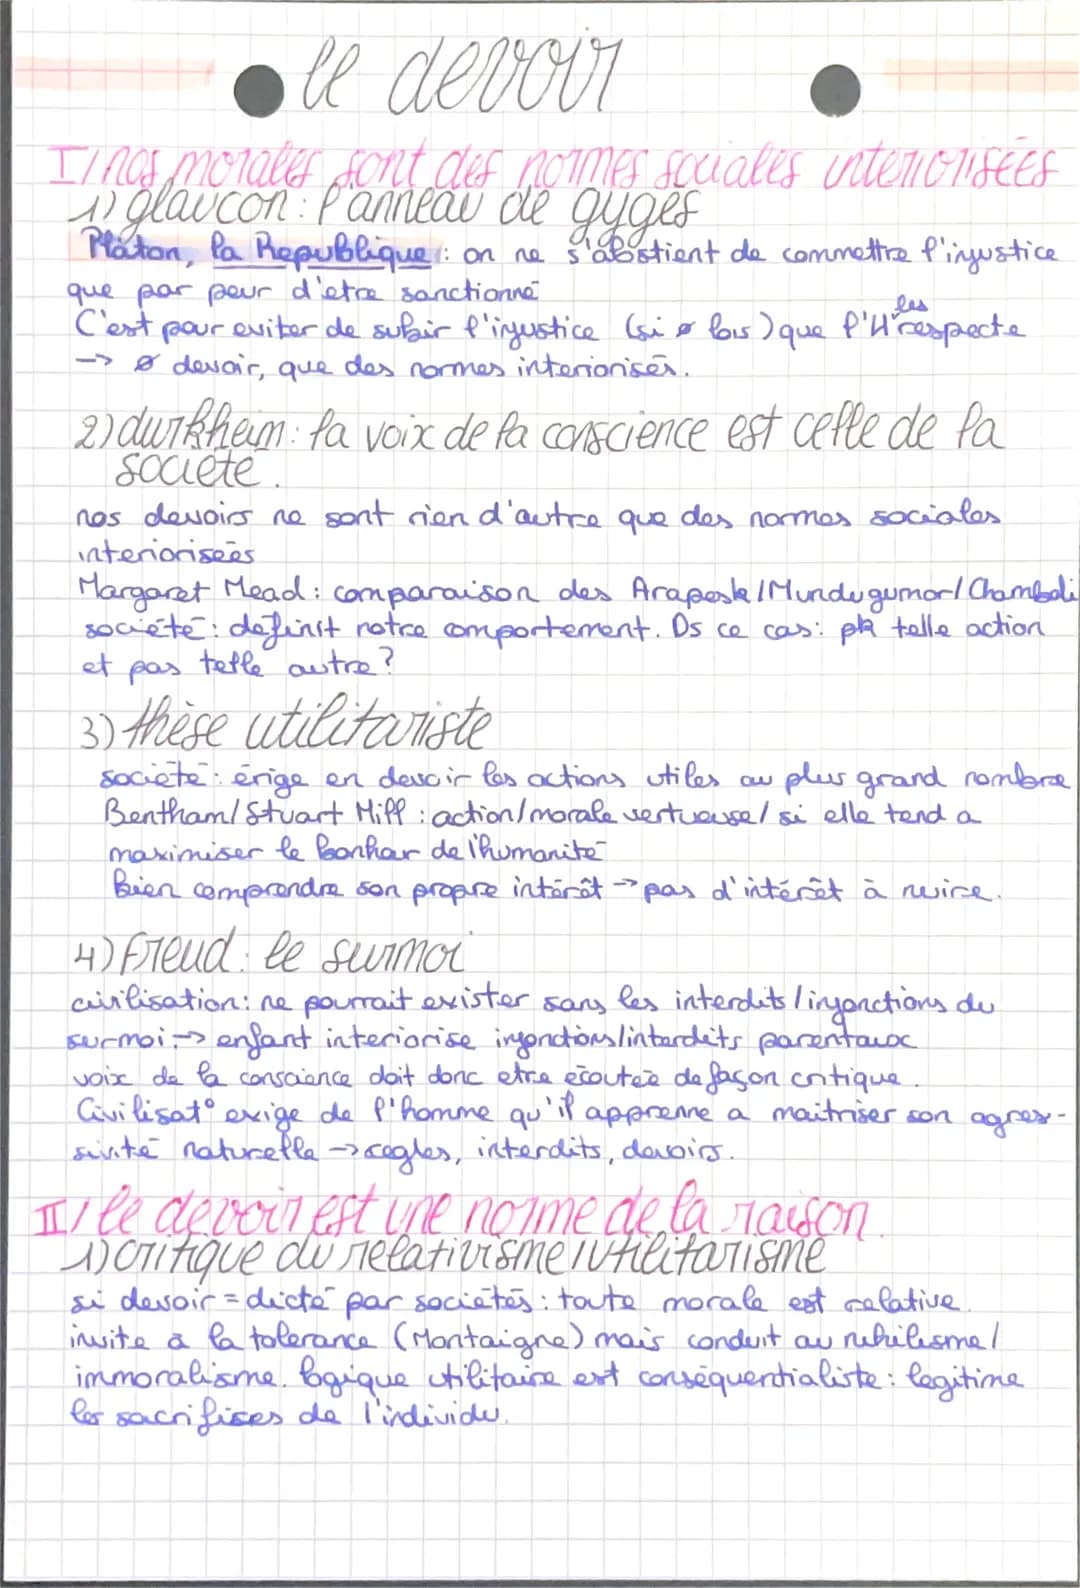 le devoir
I/ nos morales sont des normes sociales interiorisées
1) glaucon : l'anneau de gygès
Platon, la Republique : on ne s'abstient de commettre l'injustice
que par peur d'etre sanctionné
C'est pour eviter de subir l'injustice (si ø lois) que l'H les respecte
→ ø devoir, que des normes interiorisés.
2) durkheim : la voix de la conscience est celle de la
société.
nos devoirs ne sont rien d'autre que des normes sociales
interiorisées
Margaret Mead : comparaison des Arapesh/Mundugumor/Chambuli
société : definit notre comportement. Ds ce cas : pk telle action
et pas telle autre ?
3) thèse utilitariste
société : érige en devoir les actions utiles au plus grand nombre
Bentham/Stuart Mill : action/morale vertueuse/ si elle tend a
maximiser le bonheur de l'humanité
Bien comprendre son propre intérêt → pas d'intérêt à nuire.
4) Freud : le surmoi
civilisation : ne pourrait exister sans les interdits/injonctions du
surmoi → enfant interiorise injonctions/interdits parentaux
voix de la conscience doit donc etre écoutée de façon critique.
Civilisat° exige de l'homme qu'il apprenne a maitriser son agres-
sivité naturelle → regles, interdits, devoirs.
II/ le devoir est une norme de la raison.
1) critique du relativisme/utilitarisme
si devoir = dicté par sociétés : toute morale est relative.
invite à la tolerance (Montaigne) mais conduit au nihilisme/
immoralisme. logique utilitaire est conséquentialiste : legitime
les sacrifices de l'individu.